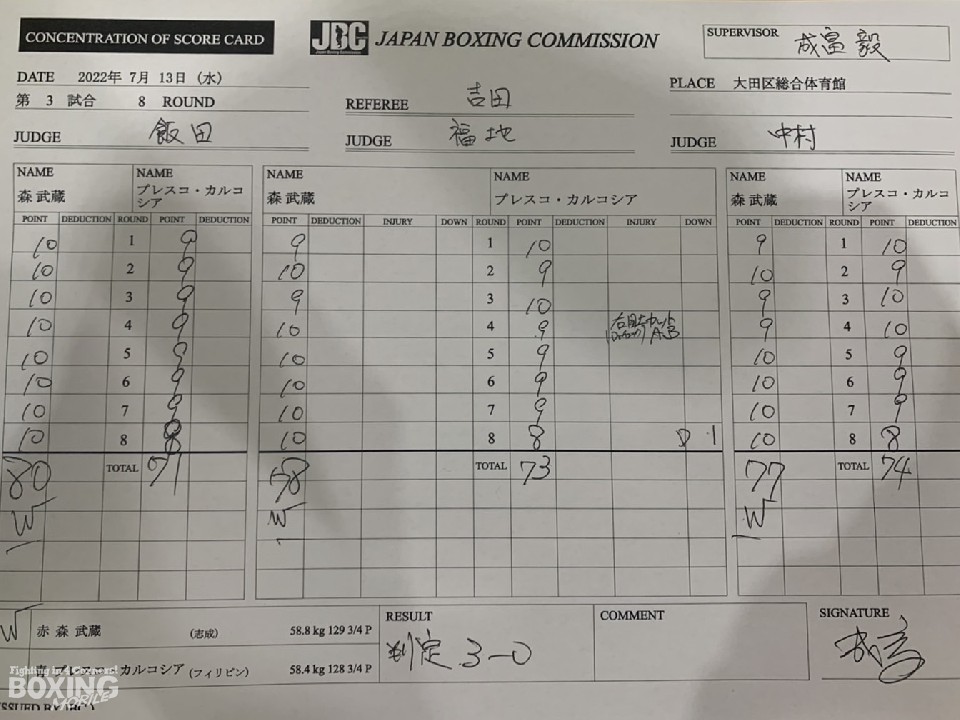 CONCENTRATION OF SCORE CARD
JBC JAPAN BOXING COMMISSION
SUPERVISOR 成富 毅
DATE 2022年 7月 13日 (水)
PLACE 大田区総合体育館
第 3 試合 8 ROUND
REFEREE 吉田
JUDGE 飯田
JUDGE 福地
JUDGE 中村
NAME 森 武蔵 NAME プレスコ・カルコシア
POINT DEDUCTION ROUND POINT DEDUCTION
10 1 9
10 2 9
10 3 9
10 4 9
10 5 9
10 6 9
10 7 9
10 8 8
80 TOTAL 71
W
NAME 森 武蔵 NAME プレスコ・カルコシア
POINT DEDUCTION INJURY DOWN ROUND POINT DEDUCTION INJURY DOWN
9 1 10
10 2 9
9 3 10
10 4 9
10 5 9
10 6 9
10 7 9
10 8 8 D 1
78 TOTAL 73
W
NAME 森 武蔵 NAME プレスコ・カルコシア
POINT DEDUCTION ROUND POINT DEDUCTION
9 1 10
10 2 9
9 3 10
9 4 10
10 5 9
10 6 9
10 7 9
10 8 8
77 TOTAL 74
W
W 赤 森 武蔵 (志成) 58.8 kg 129 3/4 P
青 プレスコ・カルコシア (フィリピン) 58.4 kg 128 3/4 P
RESULT
判定 3-0
COMMENT
SIGNATURE
成富
BOXING
MOBILE
ISSUED BY